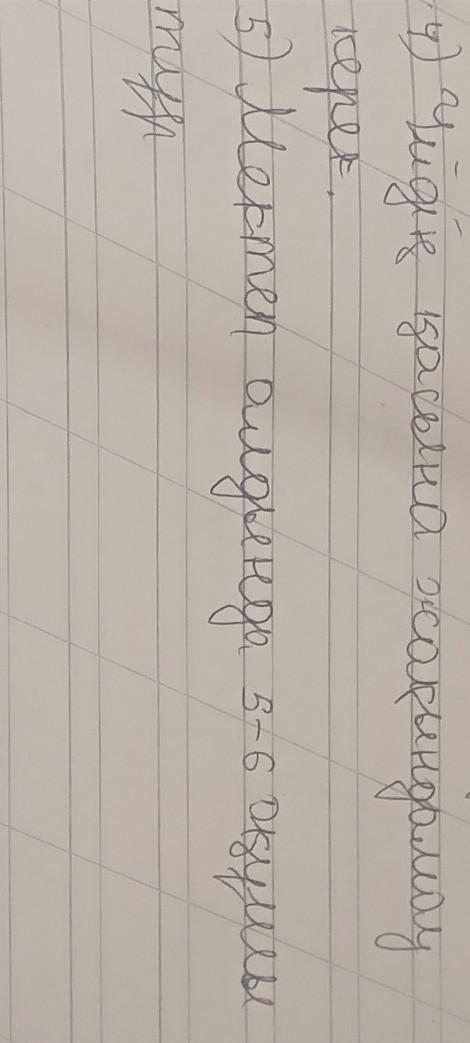 4) Үйдің қасына жақындамау
керек.
5) Мектеп алдында 5-6 оқушы
тұр